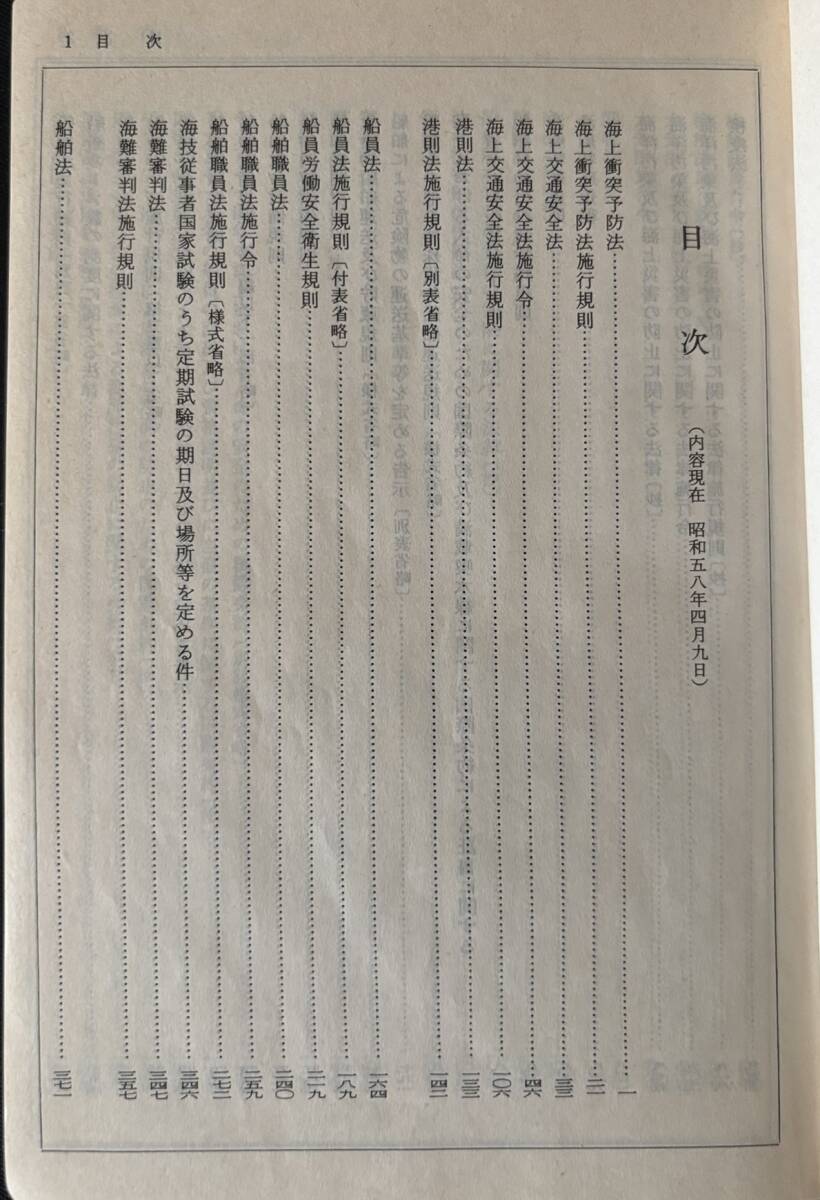 1 目 次
目 次
(内容現在 昭和五八年四月九日)
海上衝突予防法……一
海上衝突予防法施行規則……二一
海上交通安全法……三三
海上交通安全法施行令……四六
海上交通安全法施行規則……一〇六
港則法……一三三
港則法施行規則〔別表省略〕……一四二
船員法……一六四
船員法施行規則〔付表省略〕……一八九
船員労働安全衛生規則……二一九
船舶職員法……二四〇
船舶職員法施行令……二五九
船舶職員法施行規則〔様式省略〕……二七二
海技従事者国家試験のうち定期試験の期日及び場所等を定める件……三四六
海難審判法……三四七
海難審判法施行規則……三五七
船舶法……三七一